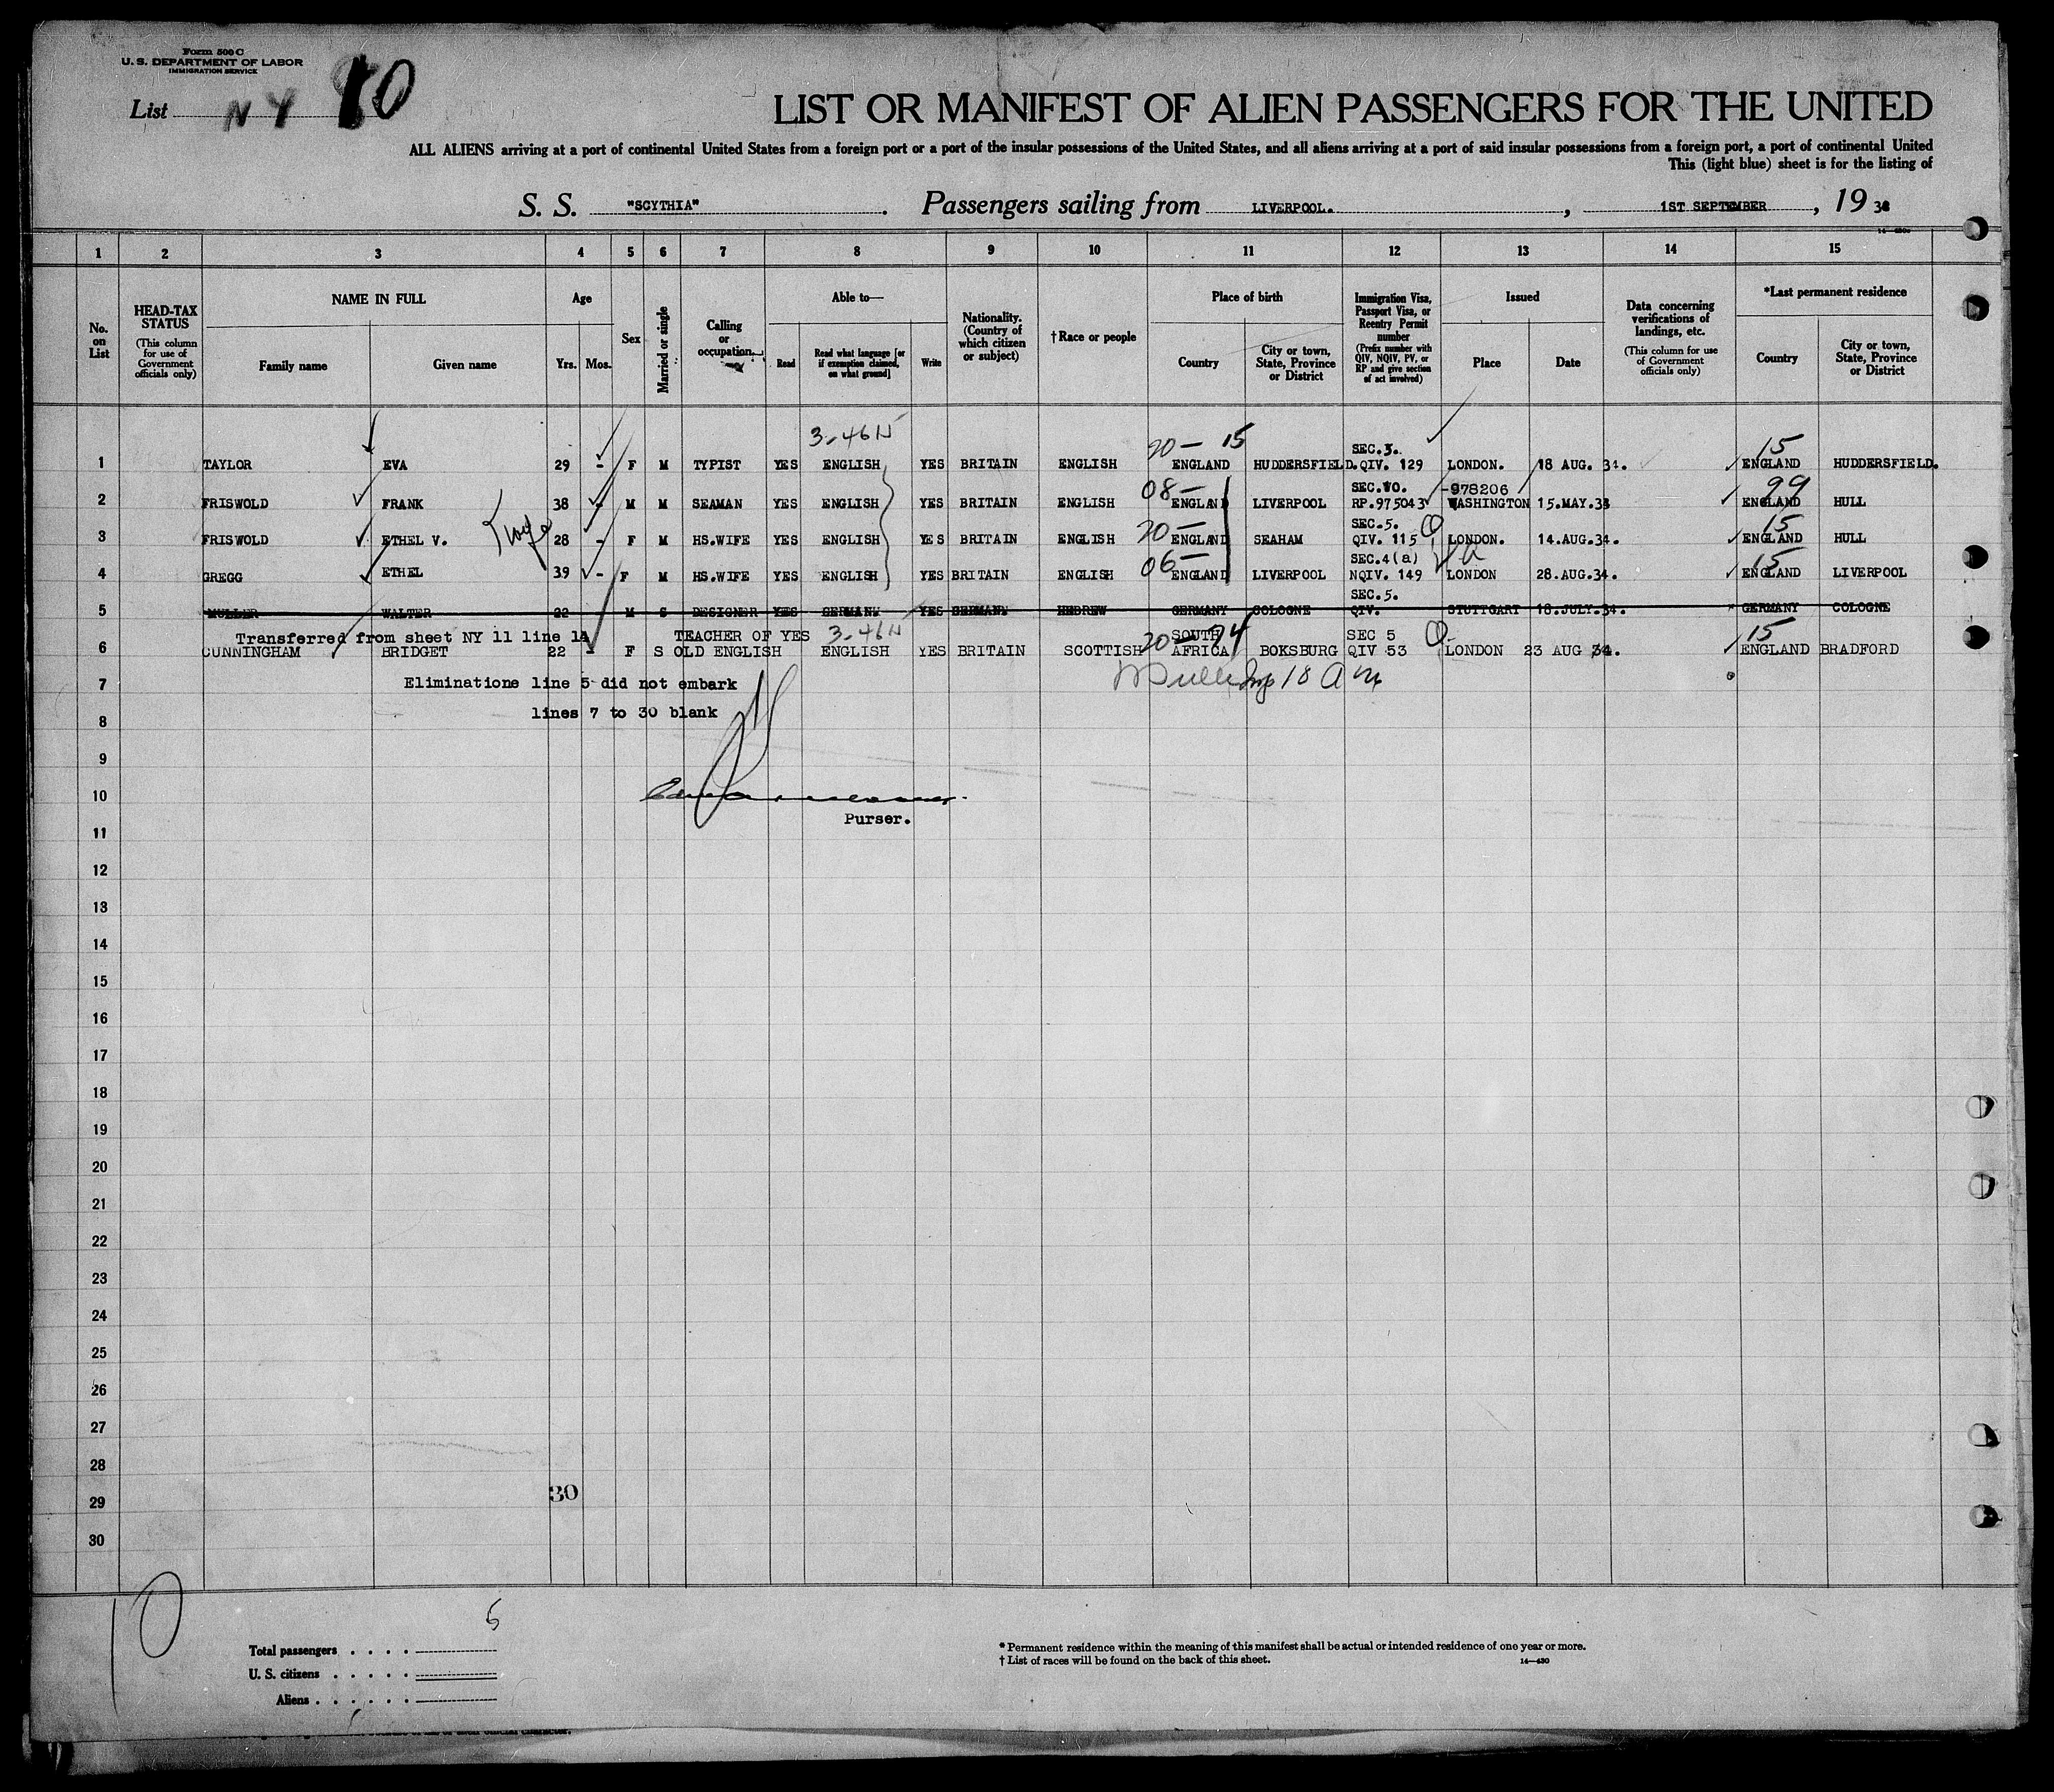 Form 500 C
U. S. DEPARTMENT OF LABOR
IMMIGRATION SERVICE
List NY 10
LIST OR MANIFEST OF ALIEN PASSENGERS FOR THE UNITED
ALL ALIENS arriving at a port of continental United States from a foreign port or a port of the insular possessions of the United States, and all aliens arriving at a port of said insular possessions from a foreign port, a port of continental United
This (light blue) sheet is for the listing of
S. S. "SCYTHIA" . Passengers sailing from LIVERPOOL. , 1ST SEPTEMBER , 19 34
1 2 3 4 5 6 7 8 9 10 11 12 13 14 15
No. on List
HEAD-TAX STATUS (This column for use of Government officials only)
NAME IN FULL
Family name Given name
Age
Yrs. Mos.
Sex
Married or single
Calling or occupation
Able to—
Read Read what language [or if exemption claimed, on what ground] Write
Nationality. (Country of which citizen or subject)
†Race or people
Place of birth
Country City or town, State, Province or District
Immigration Visa, Passport Visa, or Reentry Permit number (Prefix number with QIV, NQIV, PV, or RP and give section of act involved)
Issued
Place Date
Data concerning verifications of landings, etc. (This column for use of Government officials only)
*Last permanent residence
Country City or town, State, Province or District
3-46N 20— 15 SEC.5. 15
1 TAYLOR EVA 29 - F M TYPIST YES ENGLISH YES BRITAIN ENGLISH ENGLAND HUDDERSFIELD. QIV. 129 LONDON. 18 AUG. 34. ENGLAND HUDDERSFIELD.
08— SEC.10. -978206 99
2 FRISWOLD FRANK 38 - M M SEAMAN YES ENGLISH YES BRITAIN ENGLISH ENGLAND LIVERPOOL RP.975043 WASHINGTON 15.MAY.34 ENGLAND HULL
20— SEC.5. 15
3 FRISWOLD ETHEL V. 28 - F M HS.WIFE YES ENGLISH YES BRITAIN ENGLISH ENGLAND SEAHAM QIV. 115 LONDON. 14.AUG.34. ENGLAND HULL
06— SEC.4(a) 15
4 GREGG ETHEL 39 - F M HS.WIFE YES ENGLISH YES BRITAIN ENGLISH ENGLAND LIVERPOOL NQIV. 149 LONDON 28.AUG.34. ENGLAND LIVERPOOL
SEC.5.
5 MULLER WALTER 22 M S DESIGNER YES GERMAN YES GERMANY HEBREW GERMANY COLOGNE QIV. STUTTGART 18.JULY.34. GERMANY COLOGNE
Transferred from sheet NY 11 line 14 TEACHER OF YES 3-46N 20— 74 SOUTH SEC 5 15
6 CUNNINGHAM BRIDGET 22 - F S OLD ENGLISH ENGLISH YES BRITAIN SCOTTISH AFRICA BOKSBURG QIV 53 LONDON 23 AUG 34. ENGLAND BRADFORD
7 Eliminations line 5 did not embark
8 lines 7 to 30 blank
9
10
Purser.
11
12
13
14
15
16
17
18
19
20
21
22
23
24
25
26
27
28
29 30
30
10
Total passengers . . . . 5
U. S. citizens . . . . .
Aliens . . . . . .
* Permanent residence within the meaning of this manifest shall be actual or intended residence of one year or more.
† List of races will be found on the back of this sheet. 14—430